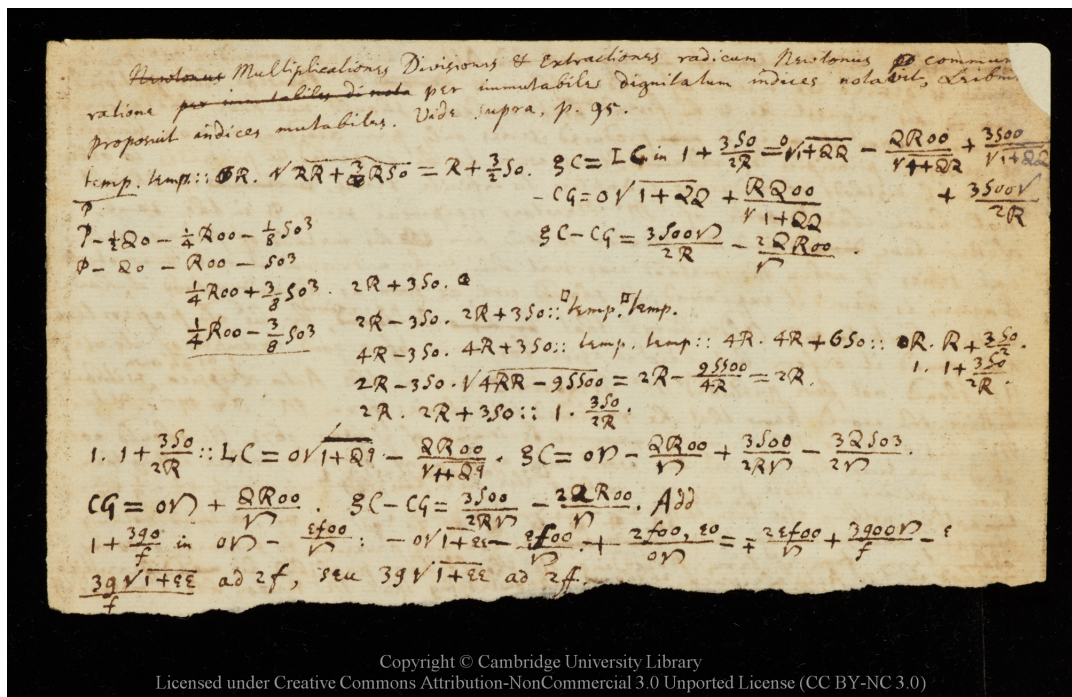 Multiplicationes Divisiones & Extractiones radicum Newtonus communi
ratione per immutabiles dignitatum indices notavit, Leibn
proposuit indices mutabiles. Vide supra, p. 95.
temp. temp :: R. √RR + 3/2 RSo = R + 3/2 So. gC = LC in 1 + 3So/2R = o√1+QQ − QRoo/√1+QQ + 3Soo/√1+QQ
− CG = o√1+QQ + RQoo/√1+QQ + 3Soo√/2R
P
P − ½Qo − ¼Roo − ⅛So³
gC − CG = 3Soon/2R − 2QRoo/n.
P − Qo − Roo − So³
¼Roo + ⅜So³. 2R + 3So.
¼Roo − ⅜So³ 2R − 3So. 2R + 3So :: □temp. □temp.
4R − 3So. 4R + 3So :: temp. temp :: 4R. 4R + 6So :: R. R + 3So/2.
2R − 3So. √4RR − 9SSoo = 2R − 9SSoo/4R = 2R. 1. 1 + 3So/2R.
2R. 2R + 3So :: 1. 3So/2R.
1. 1 + 3So/2R :: LC = o√1+Qq − QRoo/√1+Qq. gC = on − QRoo/n + 3Soo/2Rn − 3QSo3/2n.
CG = on + QRoo/n. gC − CG = 3Soo/2Rn − 2QRoo/n. Add
1 + 3go/f in on − εfoo/n : − o√1+εε − εfoo/n + 2foo, εo/on = ∓ 2εfoo/n + 3goon/f − ε
3g√1+εε/f ad 2f, seu 3g√1+εε ad 2ff.
Copyright © Cambridge University Library
Licensed under Creative Commons Attribution-NonCommercial 3.0 Unported License (CC BY-NC 3.0)